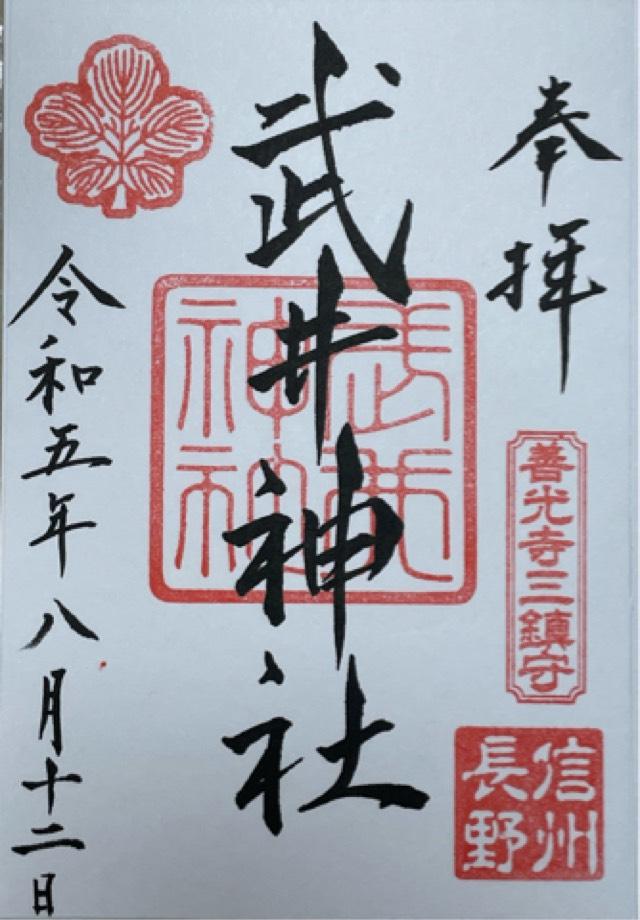 奉拝
善光寺三鎮守
信州
長野
武井神社
武井
神社
令和五年八月十二日